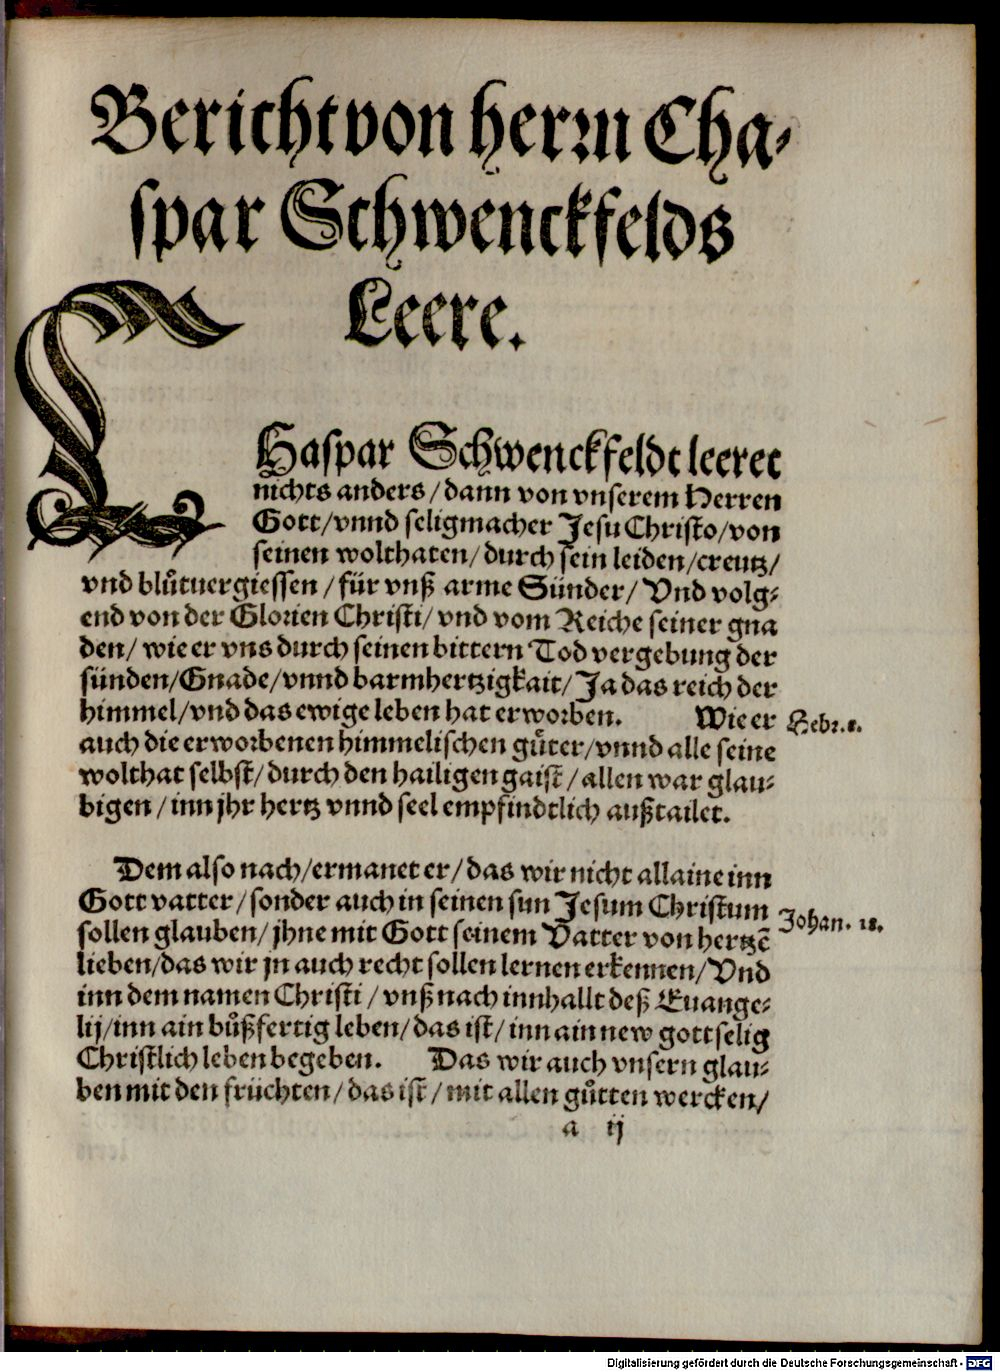 Bericht von herrn Cha-
spar Schwenckfelds
Leere.
CHaspar Schwenckfeldt leeret
nichts anders / dann von vnserem Herren
Gott / vnnd seligmacher Jesu Christo / von
seinen wolthaten / durch sein leiden / creutz /
vnd blůtuergiessen / für vnß arme Sünder / Vnd volg-
end von der Glorien Christi / vnd vom Reiche seiner gna
den / wie er vns durch seinen bittern Tod vergebung der
sünden / Gnade / vnnd barmhertzigkait / Ja das reich der
himmel / vnd das ewige leben hat erworben. Wie er
Hebr. 8.
auch die erworbenen himmelischen gůter / vnnd alle seine
wolthat selbst / durch den hailigen gaist / allen war glau-
bigen / inn jhr hertz vnnd seel empfindtlich außtailet.
Dem also nach / ermanet er / das wir nicht allaine inn
Gott vatter / sonder auch in seinen sun Jesum Christum
Johan. 18.
sollen glauben / jhne mit Gott seinem Vatter von hertzẽ
lieben / das wir jn auch recht sollen lernen erkennen / Vnd
inn dem namen Christi / vnß nach innhallt deß Euange-
lij / inn ain bůßfertig leben / das ist / inn ain new gottselig
Christlich leben begeben. Das wir auch vnsern glau-
ben mit den früchten / das ist / mit allen gůtten wercken /
a ij
Digitalisierung gefördert durch die Deutsche Forschungsgemeinschaft - DFG